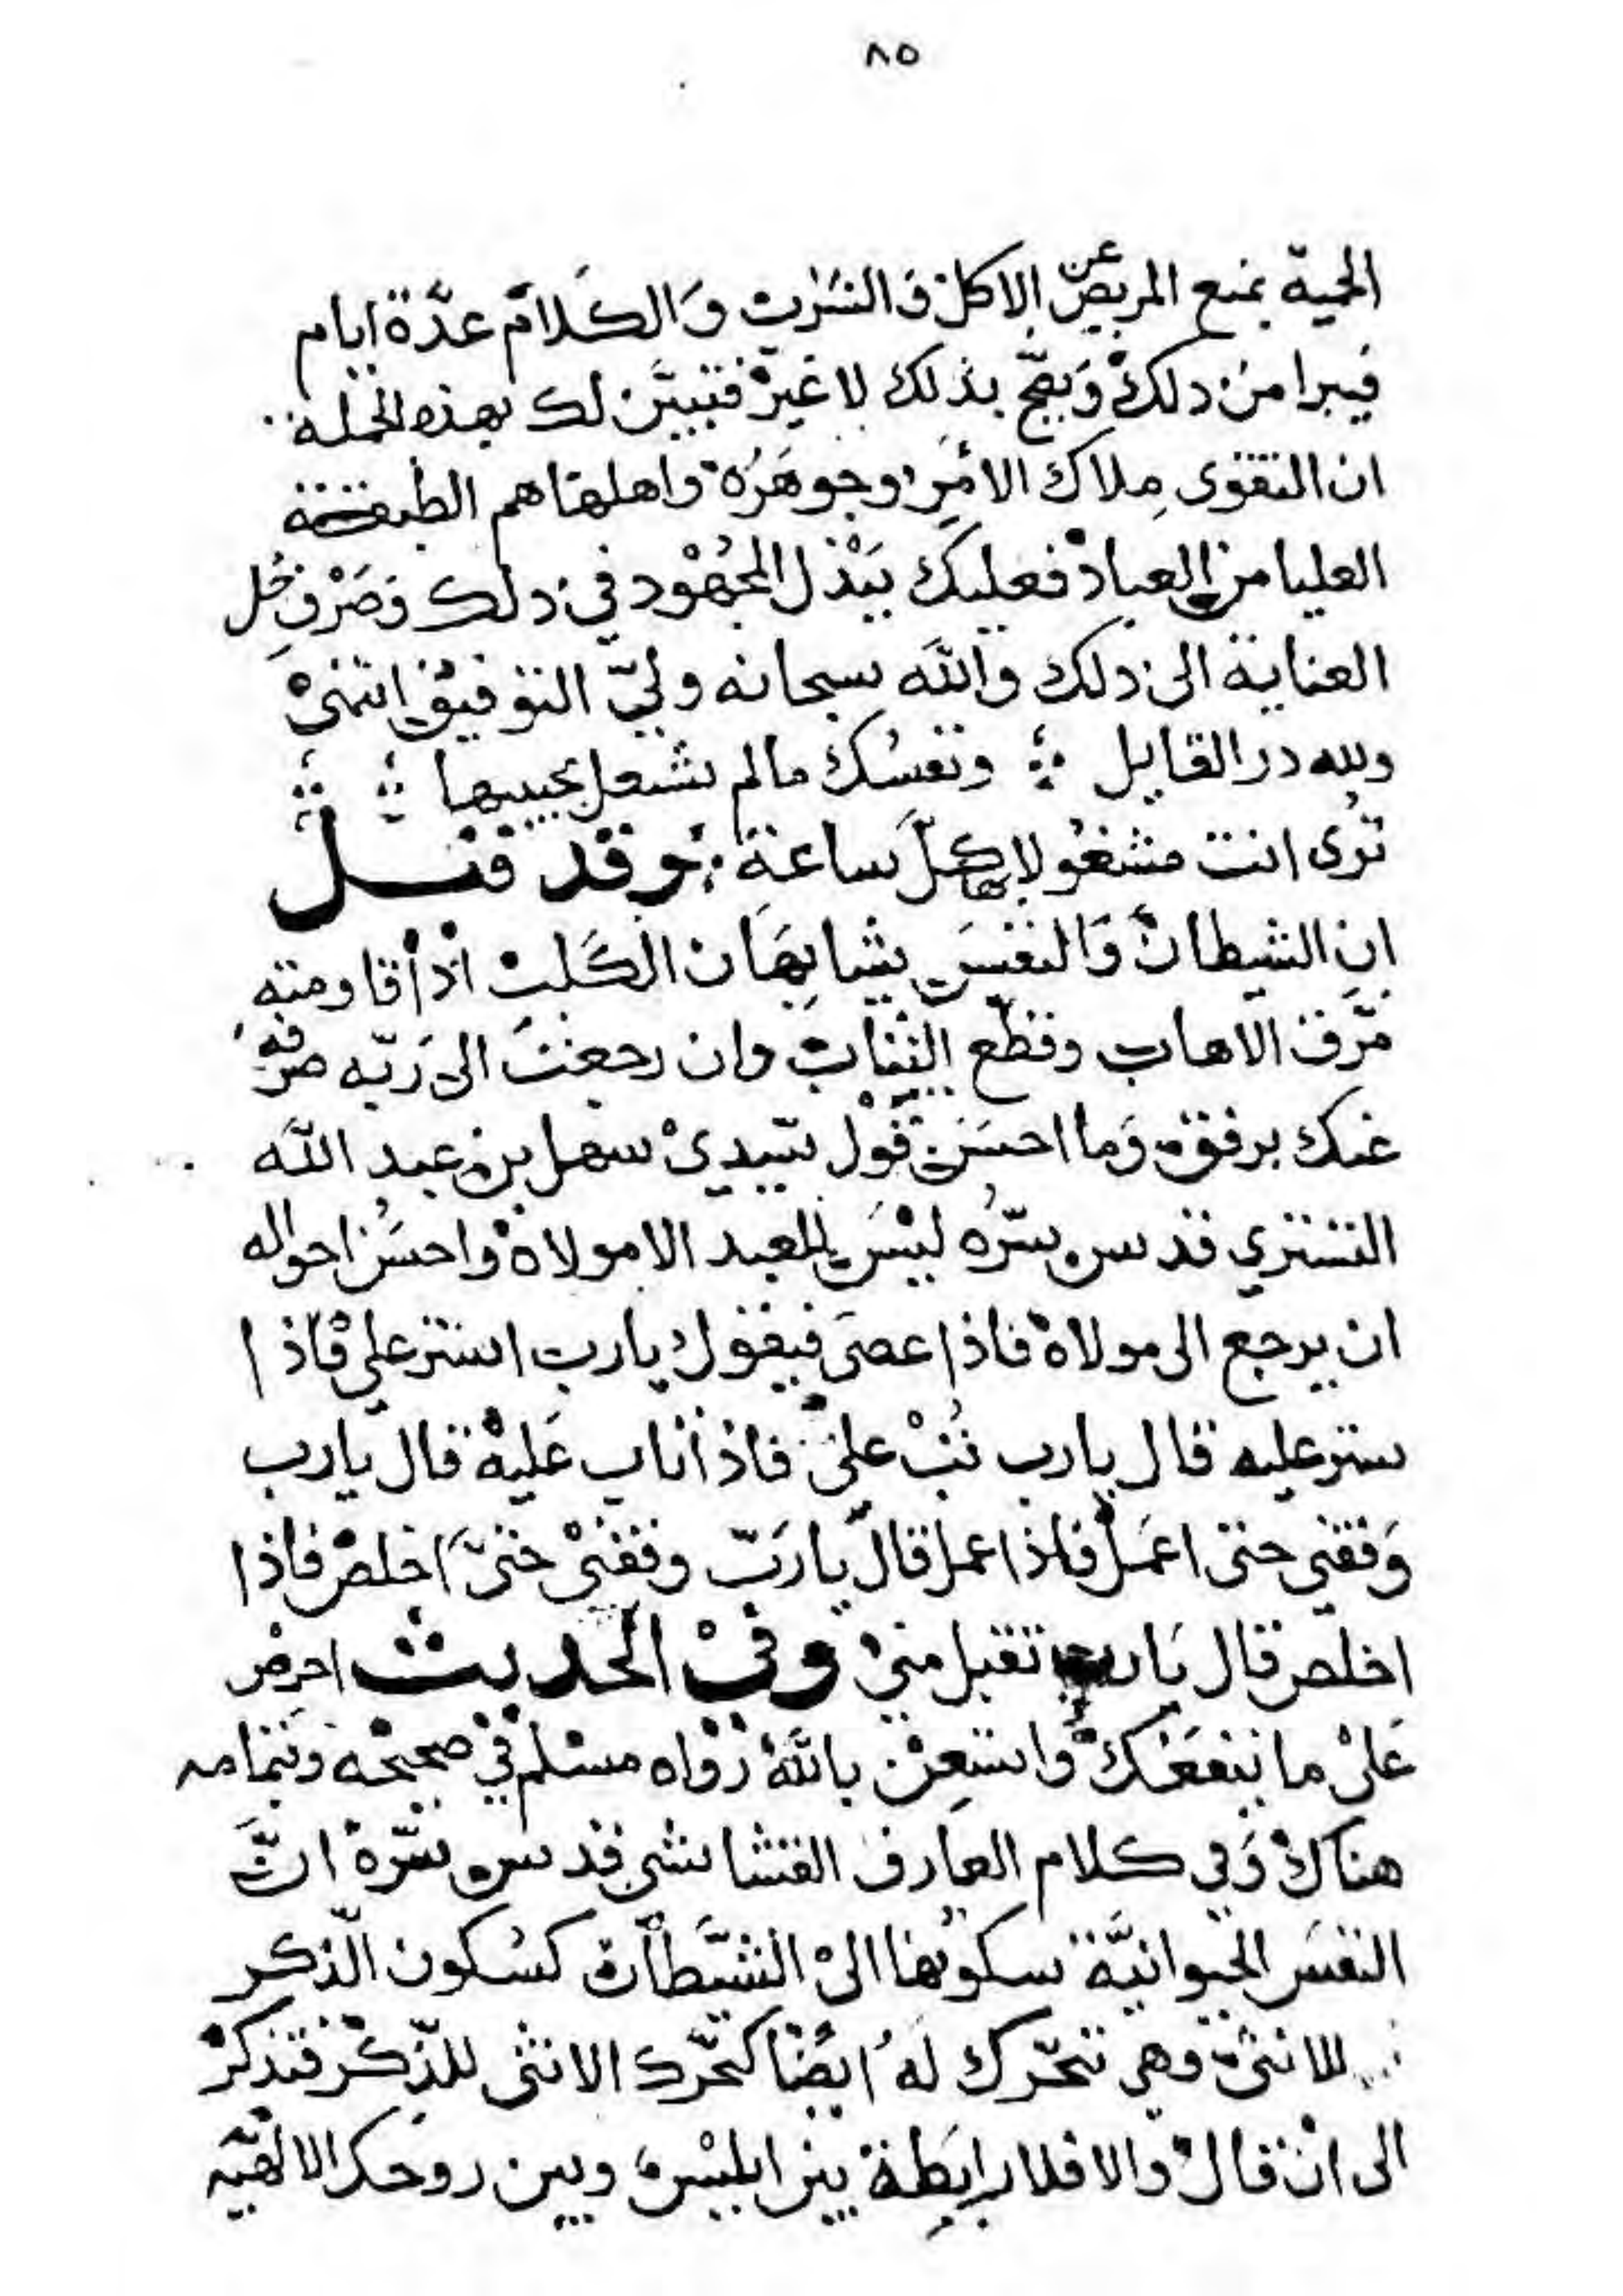 ٨٥
الحمية بمنع المريض عن الاكل و الشراب وَالكلام عدَّة ايام
فيبرا من ذلك وَيصحّ بذلك لا غير فتبيَّن لك بهذه الجملة
ان التقوى مِلاك الامر وجوهَرُه واهلها هم الطبقة
العليا من العباد فعليك ببَذل المجهُود في ذلك وَصَرف جُل
العناية الى ذلك والله سبحانه وليّ التوفيق انتهى
ولله در القايل ∴ ونفسُك مالم تشغل بحبيبها ∴ ∴
تُرى انت مشغُولا بها كلّ ساعة ∴ وقد قيل
ان الشيطان وَالنفسَ يشابهَان الكَلب اذا قاومته
مَزّق الاهاب وقطع الثياب وان رجعت الى رَبّه صرفه
عنك برفق وَما احسَن قول سيدي سهل بن عبد الله
التستري قدس سرّه ليسَ للعبد الا مولاه واحسَنُ احواله
ان يرجع الى مولاه فاذا عصَى فيقول يارب استر علي فاذا
ستر عليه قال يارب تُبْ علىّ فاذا تاب عَليه قال يارب
وَفقني حتى اعمَل فاذا عمل قال يارَبّ وفقني حتىّ اخلص فاذا
اخلص قال يَارب تقبل مني وفي الحديث احرِص
عَلى ما ينفعَك واستعِن بالله رَوَاه مسلم في صحيحه وتمامه
هناك وَفي كلام العارف القشاشي قدس سرّه انَّ
النفسَ الحيوانيَّة سكونها الى الشيَّطان كسُكون الذّكر
للانثى وهي تتحّرك لهُ ايضًا كتحّرك الانثى للذّكر فتذكر
الى ان قال والا فلا رابَطة بين ابليس وبين روحك الالهيّه